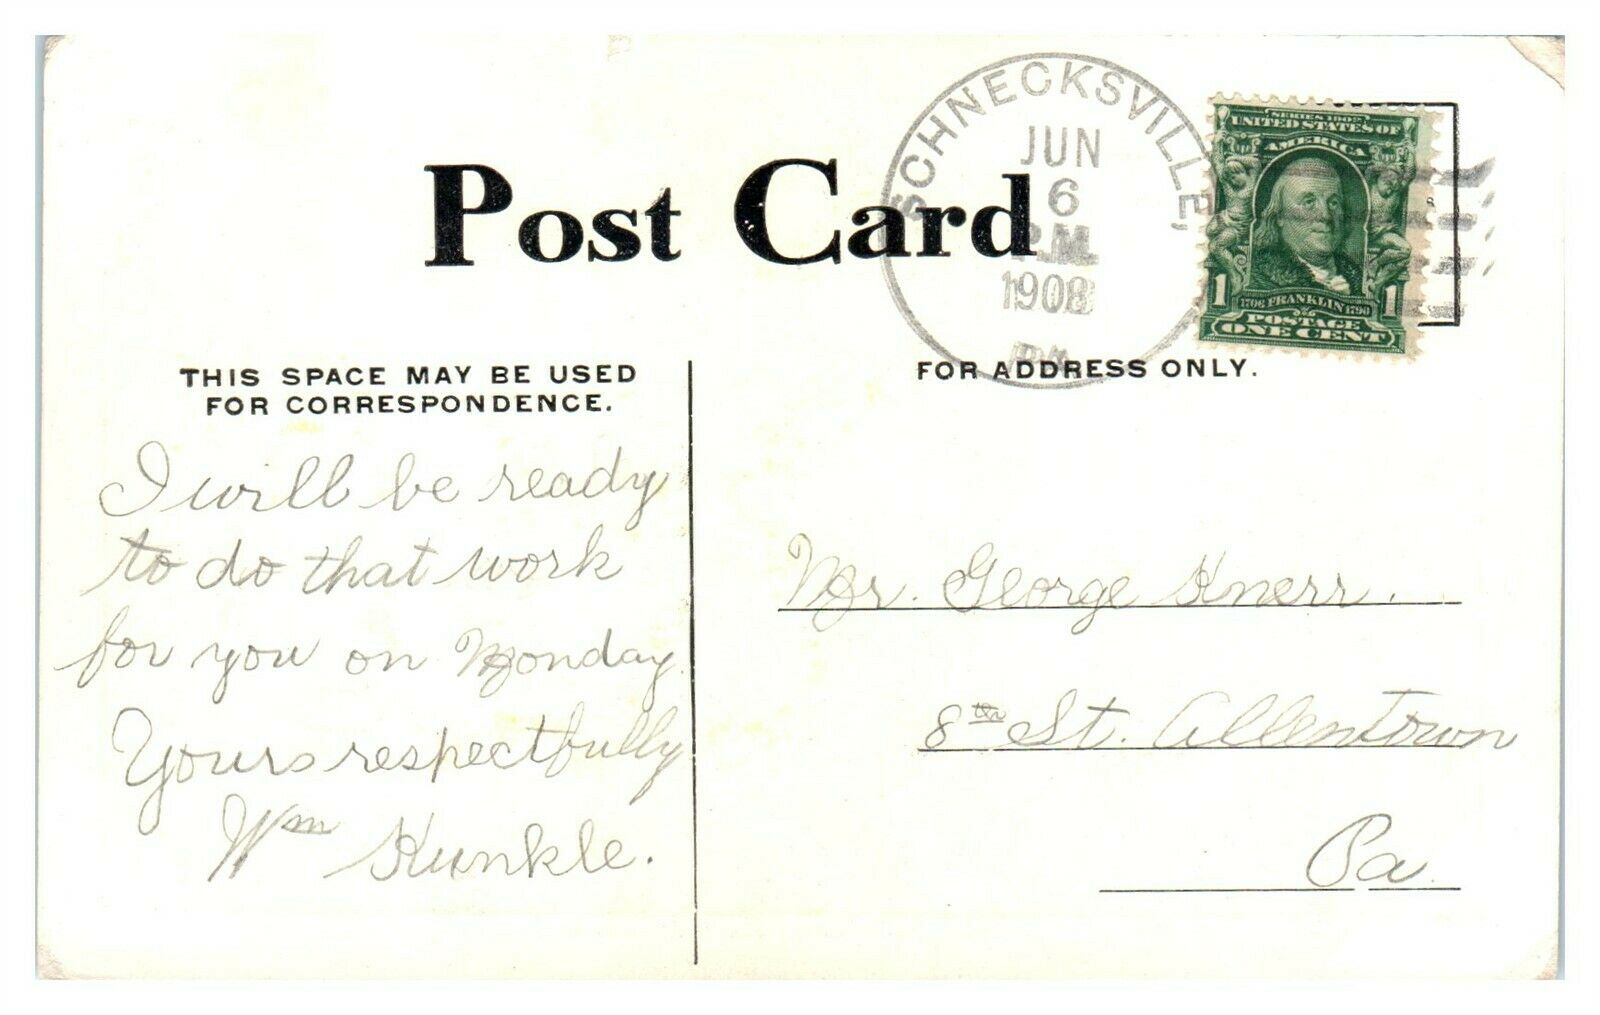 Post Card
SCHNECKSVILLE,
JUN
6
P.M.
1908
PA.
SERIES 1902
UNITED STATES OF
AMERICA
1706 FRANKLIN 1790
1 1
POSTAGE
ONE CENT
THIS SPACE MAY BE USED
FOR CORRESPONDENCE.
FOR ADDRESS ONLY.
I will be ready
to do that work
for you on Monday.
Yours respectfully
Wm Kunkle.
Mr. George Knerr.
8th St. Allentown
Pa.